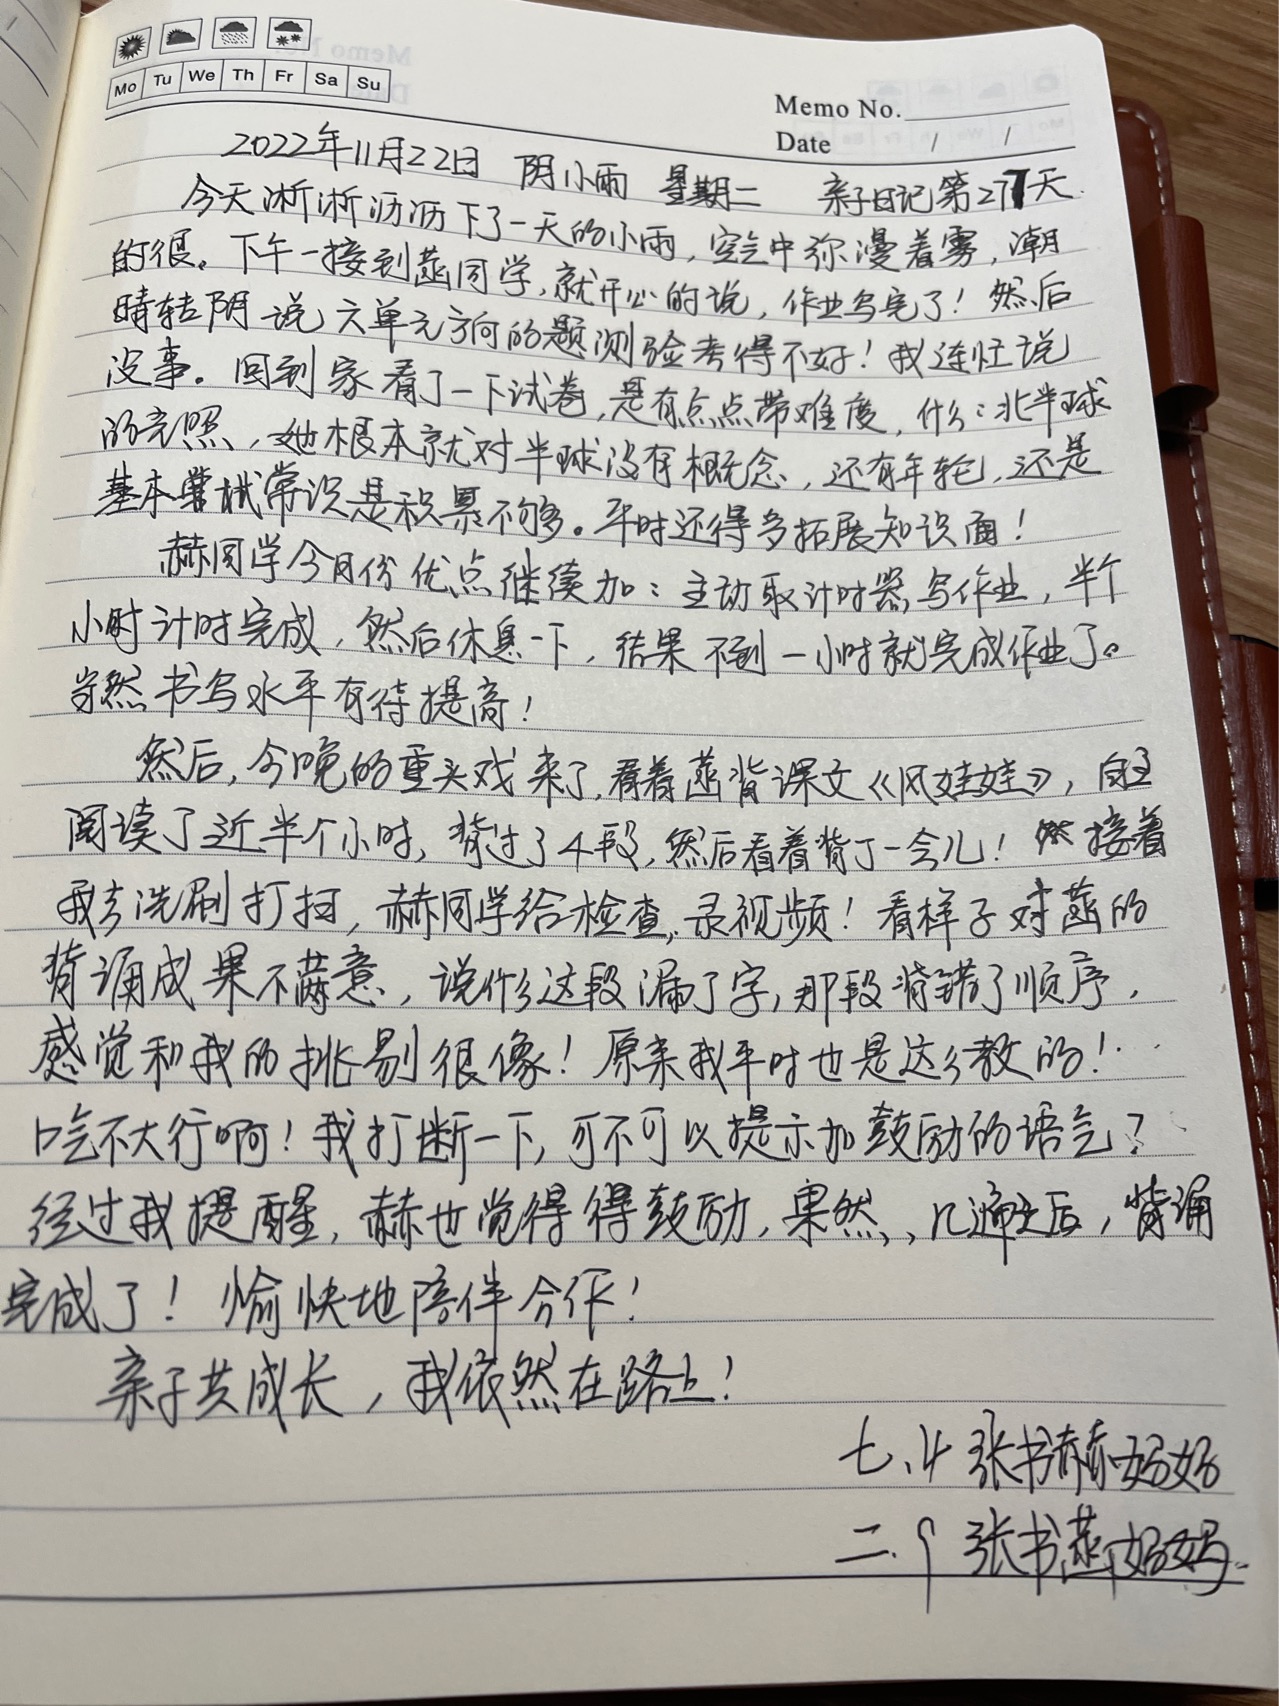 Mo Tu We Th Fr Sa Su
Memo No.
Date / /
2022年11月22日 阴小雨 星期二 亲子日记第271天
今天淅淅沥沥下了一天的小雨,空气中弥漫着雾,潮
的很。下午一接到菡同学,就开心的说,作业写完了!然后
晴转阴说六单元方向的题测验考得不好!我连忙说
没事。回到家看了一下试卷,是有点点带难度,什么:北半球
的光照,她根本就对半球没有概念、还有年轮,还是
基本常识是积累不够。平时还得多拓展知识面!
赫同学今月份优点继续加:主动取计时器写作业,半个
小时计时完成,然后休息一下,结果不到一小时就完成作业了。
当然书写水平有待提高!
然后,今晚的重头戏来了,看着菡背课文《风娃娃》,自主
阅读了近半个小时,背过了4段,然后看着背了一会儿!接着
我去洗刷打扫,赫同学给检查,录视频!看样子对菡的
背诵成果不满意,说什么这段漏了字,那段背错了顺序,
感觉和我的挑剔很像!原来我平时也是这么教的!..
口吃不大行啊!我打断一下,可不可以提示加鼓励的语气?
经过我提醒,赫也觉得得鼓励,果然,,几遍之后,背诵
完成了!愉快地陪伴合作!
亲子共成长,我依然在路上!
七.4 张书赫妈妈
二.9 张书菡妈妈.